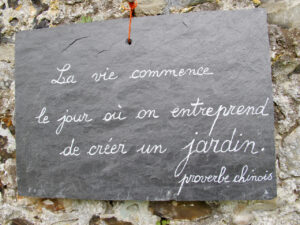 La vie commence
le jour où on entreprend
de créer un jardin.
proverbe chinois